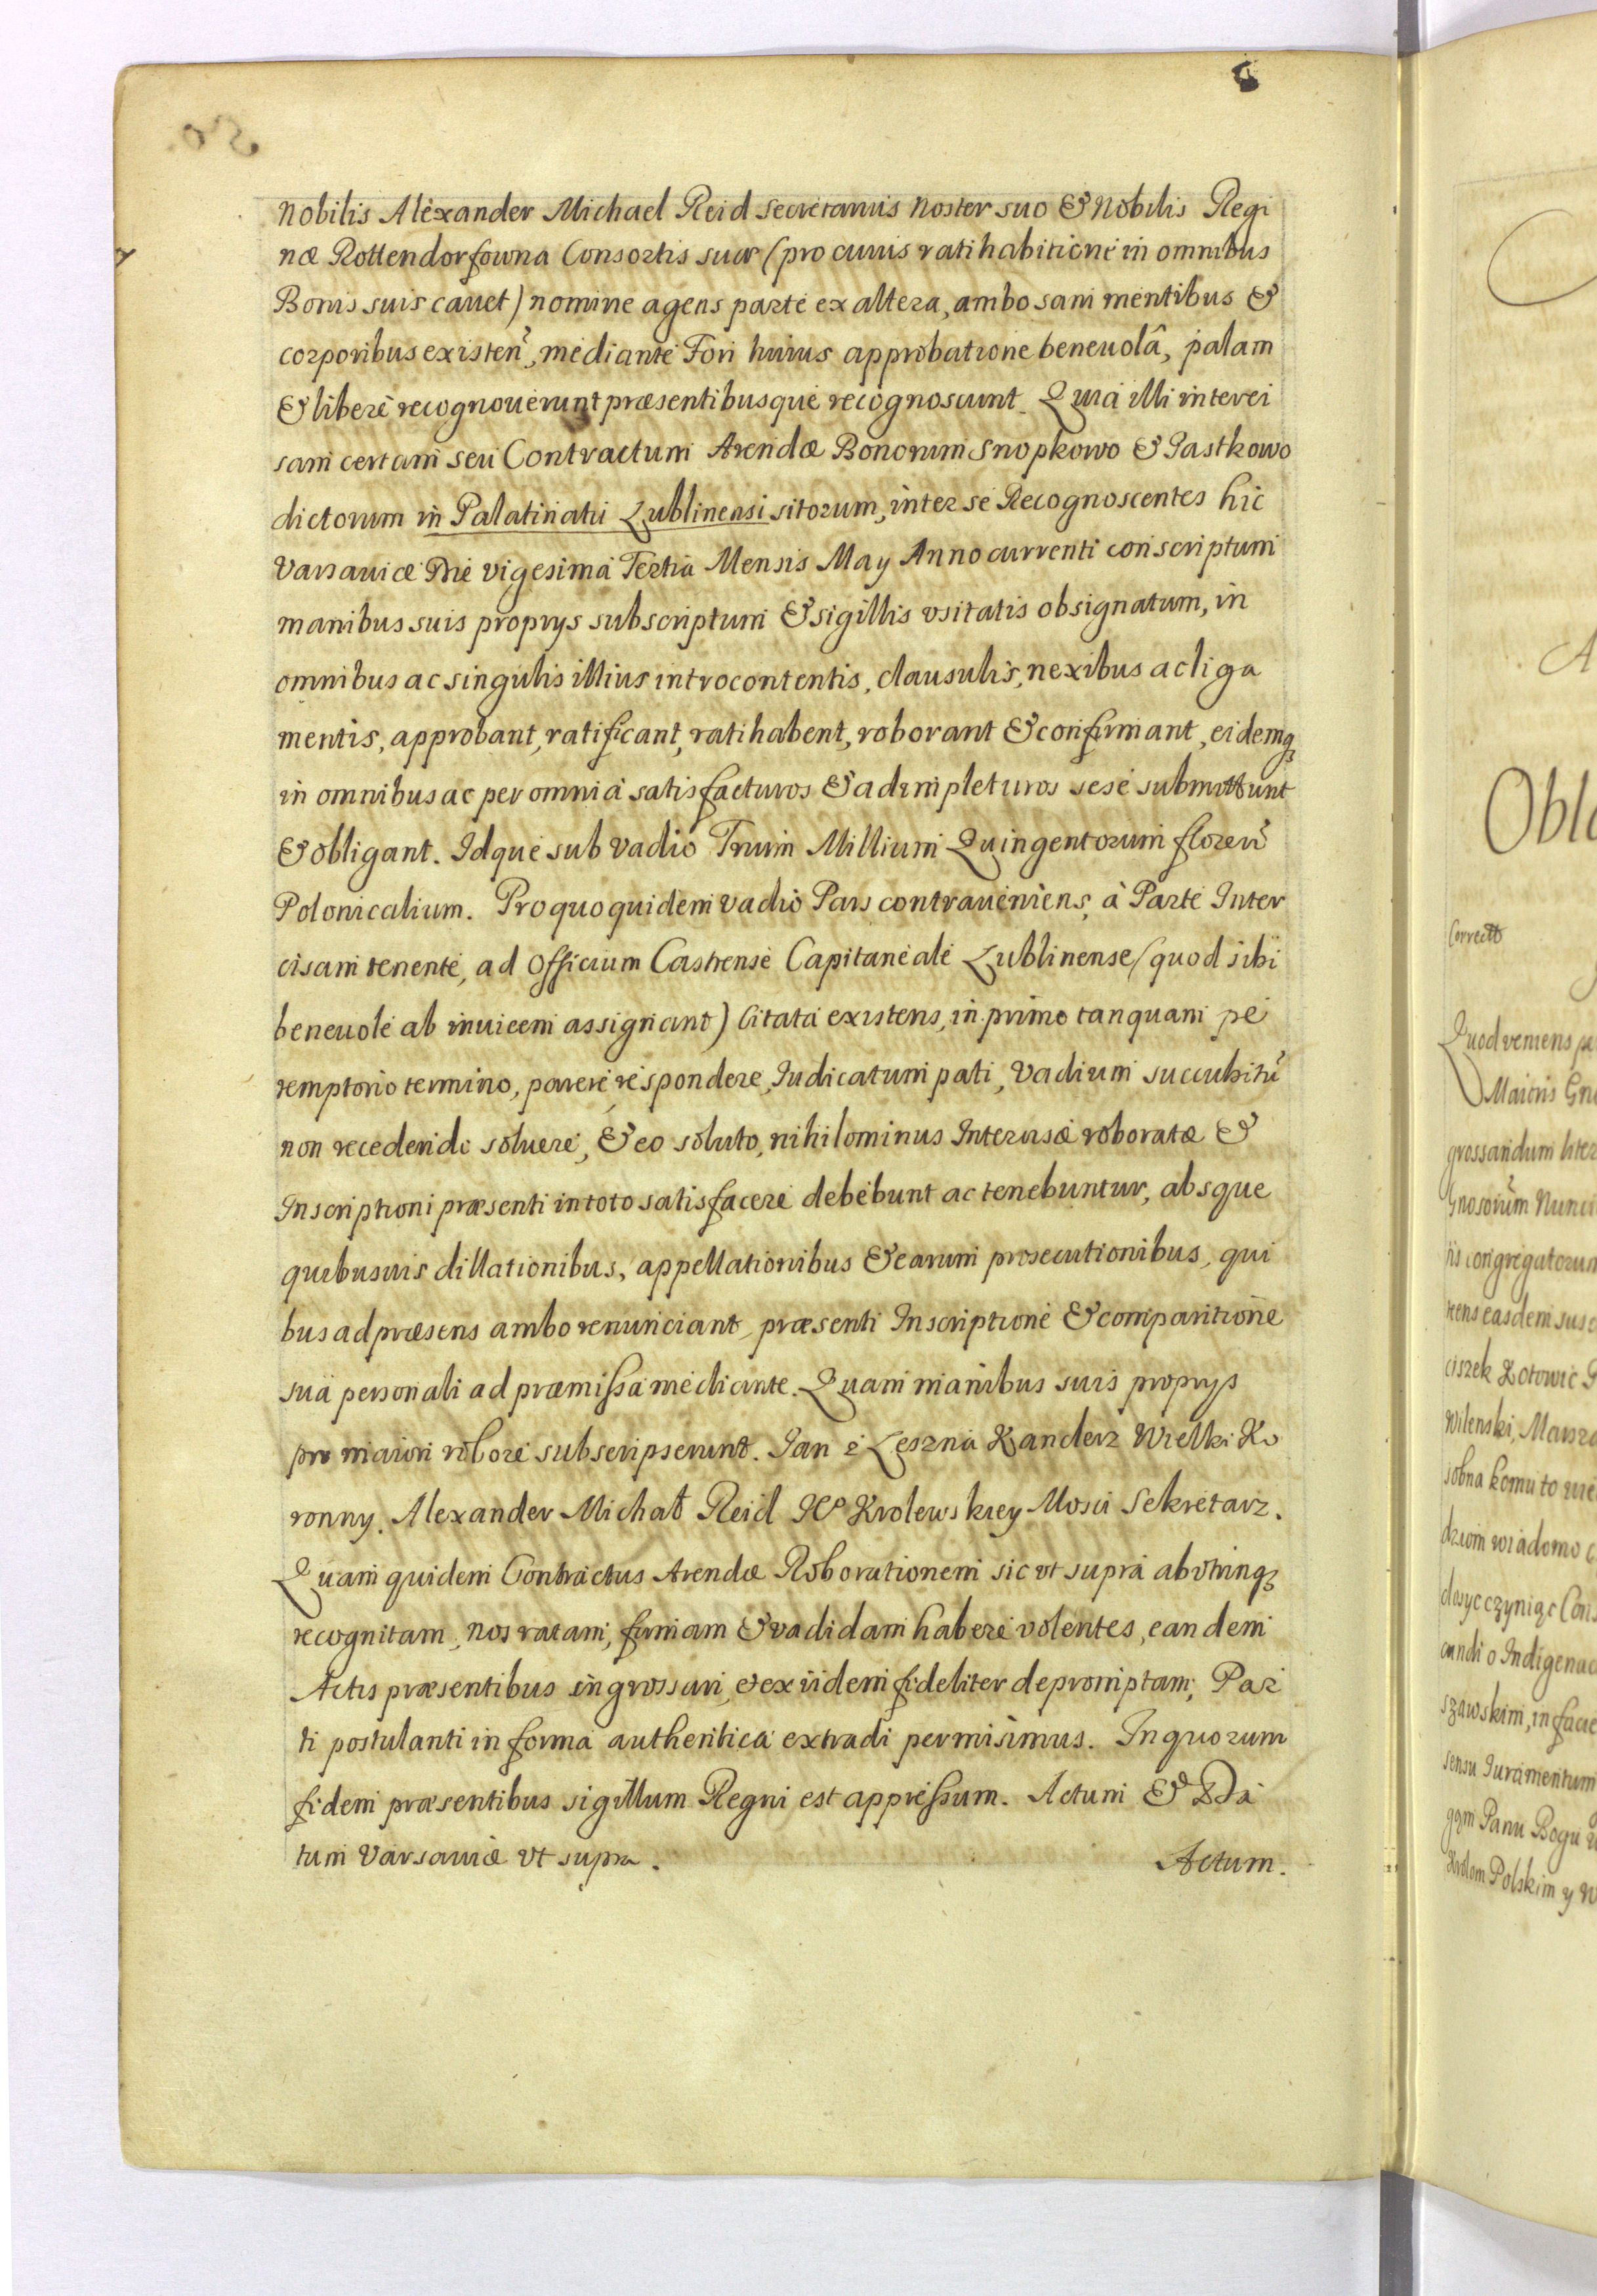 Nobilis Alexander Michael Reid Secretarius Noster suo & Nobilis Regi
næ Rottendorfowna Consortis suæ (pro cuius ratihabitione in omnibus
Bonis suis cauet) nomine agens parte ex altera, ambo sani mentibus &
corporibus existen, mediante Fori huius approbatione beneuolâ, palam
& liberè recognouerunt præsentibusque recognoscunt. Quia illi interci
sam certam seu Contractum Arendæ Bonorum Snopkowo & Pastkowo
dictorum in Palatinatu Lublinensi sitorum, inter se Recognoscentes hic
Varsauiæ Die vigesima Tertia Mensis May Anno currenti conscriptum
manibus suis proprys subscriptum & sigillis vsitatis obsignatum, in
omnibus ac singulis illius introcontentis, clausulis, nexibus ac liga
mentis, approbant, ratificant, ratihabent, roborant & confirmant, eidemq
in omnibus ac per omnia satisfacturos & adimpleturos sese submittunt
& obligant. Idque sub vadio Trium Millium Quingentorum floren
Polonicalium. Pro quo quidem vadio Pars contraueniens, à Parte Inter
cisam tenente, ad Officium Castrense Capitaneale Lublinense (quod sibi
beneuole ab inuicem assignant) Citata existens, in primo tanquam pe
remptorio termino, parere respondere, Iudicatum pati, Vadium succubitũ
non recedendo soluere, & eo soluto, nihilominus Intercisæ roboratæ &
Inscriptioni præsenti in toto satisfacere debebunt ac tenebuntur, absque
quibusuis dillationibus, appellationibus & earum prosecutionibus, qui
bus ad præsens ambo renunciant, præsenti Inscriptione & comparitione
sua personali ad præmissa mediante. Quam manibus suis proprys
pro maiori robore subscripserunt. Jan z Leszna Kanclerz Wielki Ko
ronny. Alexander Michał Reid Krolewskiey Mosci Sekretarz.
Quam quidem Contractus Arendæ Roborationem sic vt supra ab vtrinq
recognitam, nos ratam, firmam & vadidam habere volentes, eandem
Actis præsentibus ingrossari, et ex iisdem fideliter depromptam, Par
ti postulanti in forma authentica extradi permisimus. In quorum
fidem præsentibus sigillum Regni est appressum. Actum & Da
tum Varsauiæ vt supra.
Actum.
Oblo
Correcto
Quod veniens pa
Maioris
grossandum liter
Gnosorum Nunci
tis congregatorum
rens easdem susc
ciszek Kotowic
Wilenski, Marsza
sobna komu to
dziom wiadomo
dosyc czyniąc Con
candi o Indigenac
szawskim, in facie
sensu Iuramentum
Panu Bogu
Krolom Polskim y W